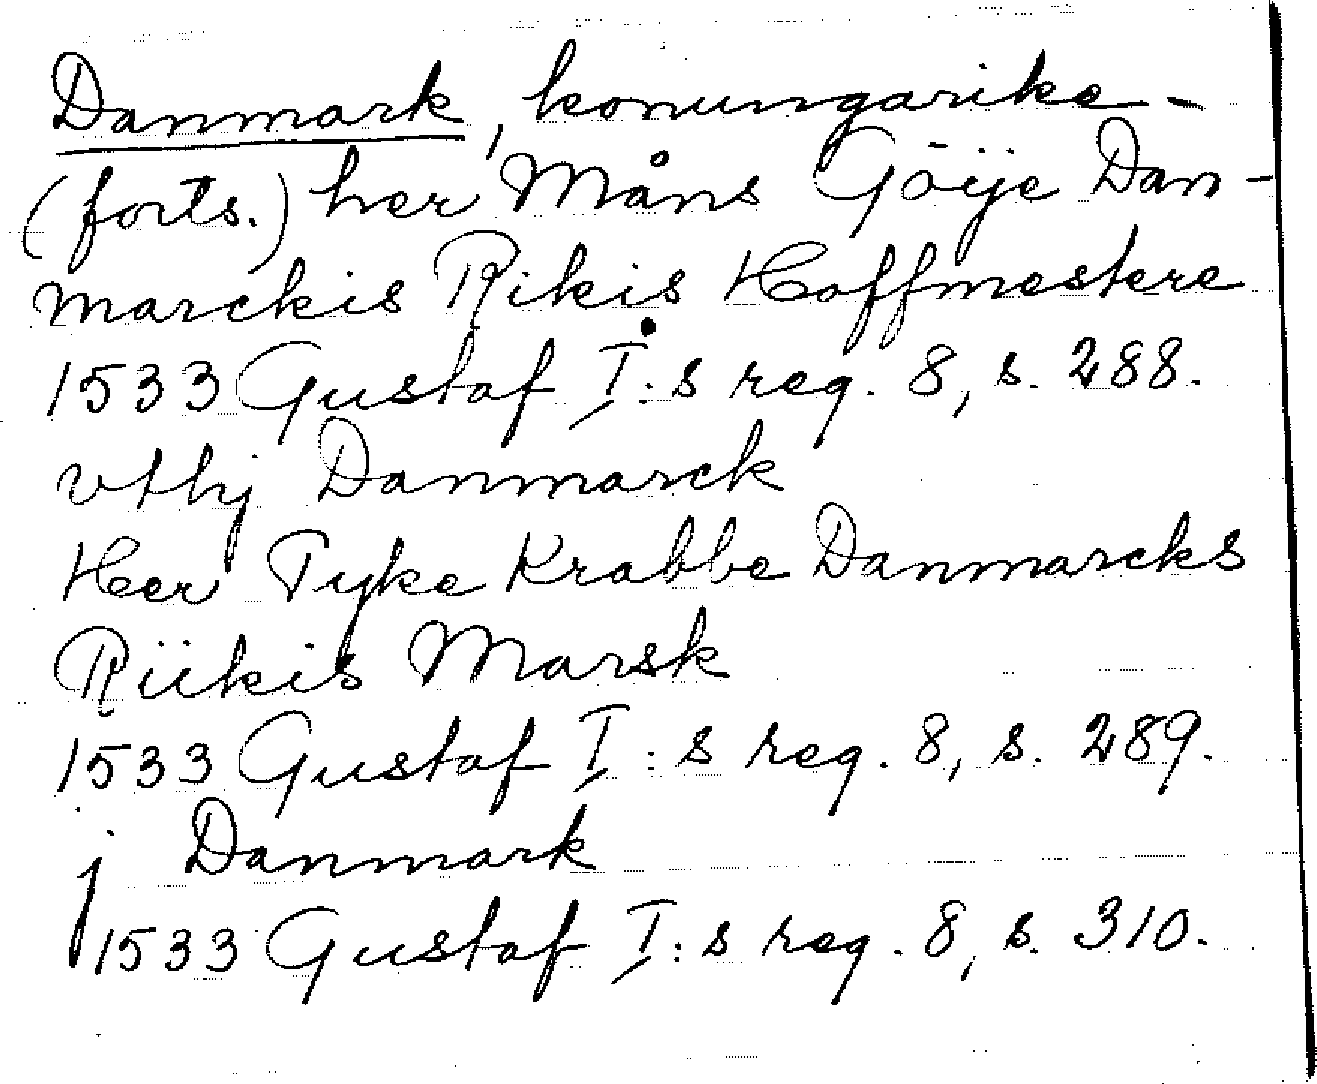 Danmark, konungarike -
(forts.) her Måns Göÿe Dan-
marckis Rikis Hoffmestere
1533 Gustaf I:s reg. 8, s. 288.
vthj Danmarck
Heer Tyke Krabbe Danmarcks
Riikis Marsk
1533 Gustaf I:s reg. 8, s. 289.
j Danmark
1533 Gustaf I:s reg. 8, s. 310.